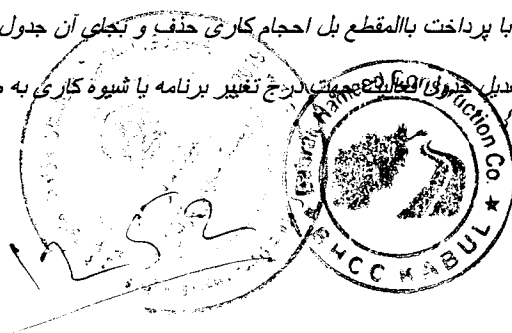 با پرداخت باالمقطع بل احجام کاری حذف و بجای آن جدول
تعدیل جدول فعالیت جهت درج تغییر برنامه یا شیوه کاری به
Hameed Construction Co.
BHCC KABUL ★